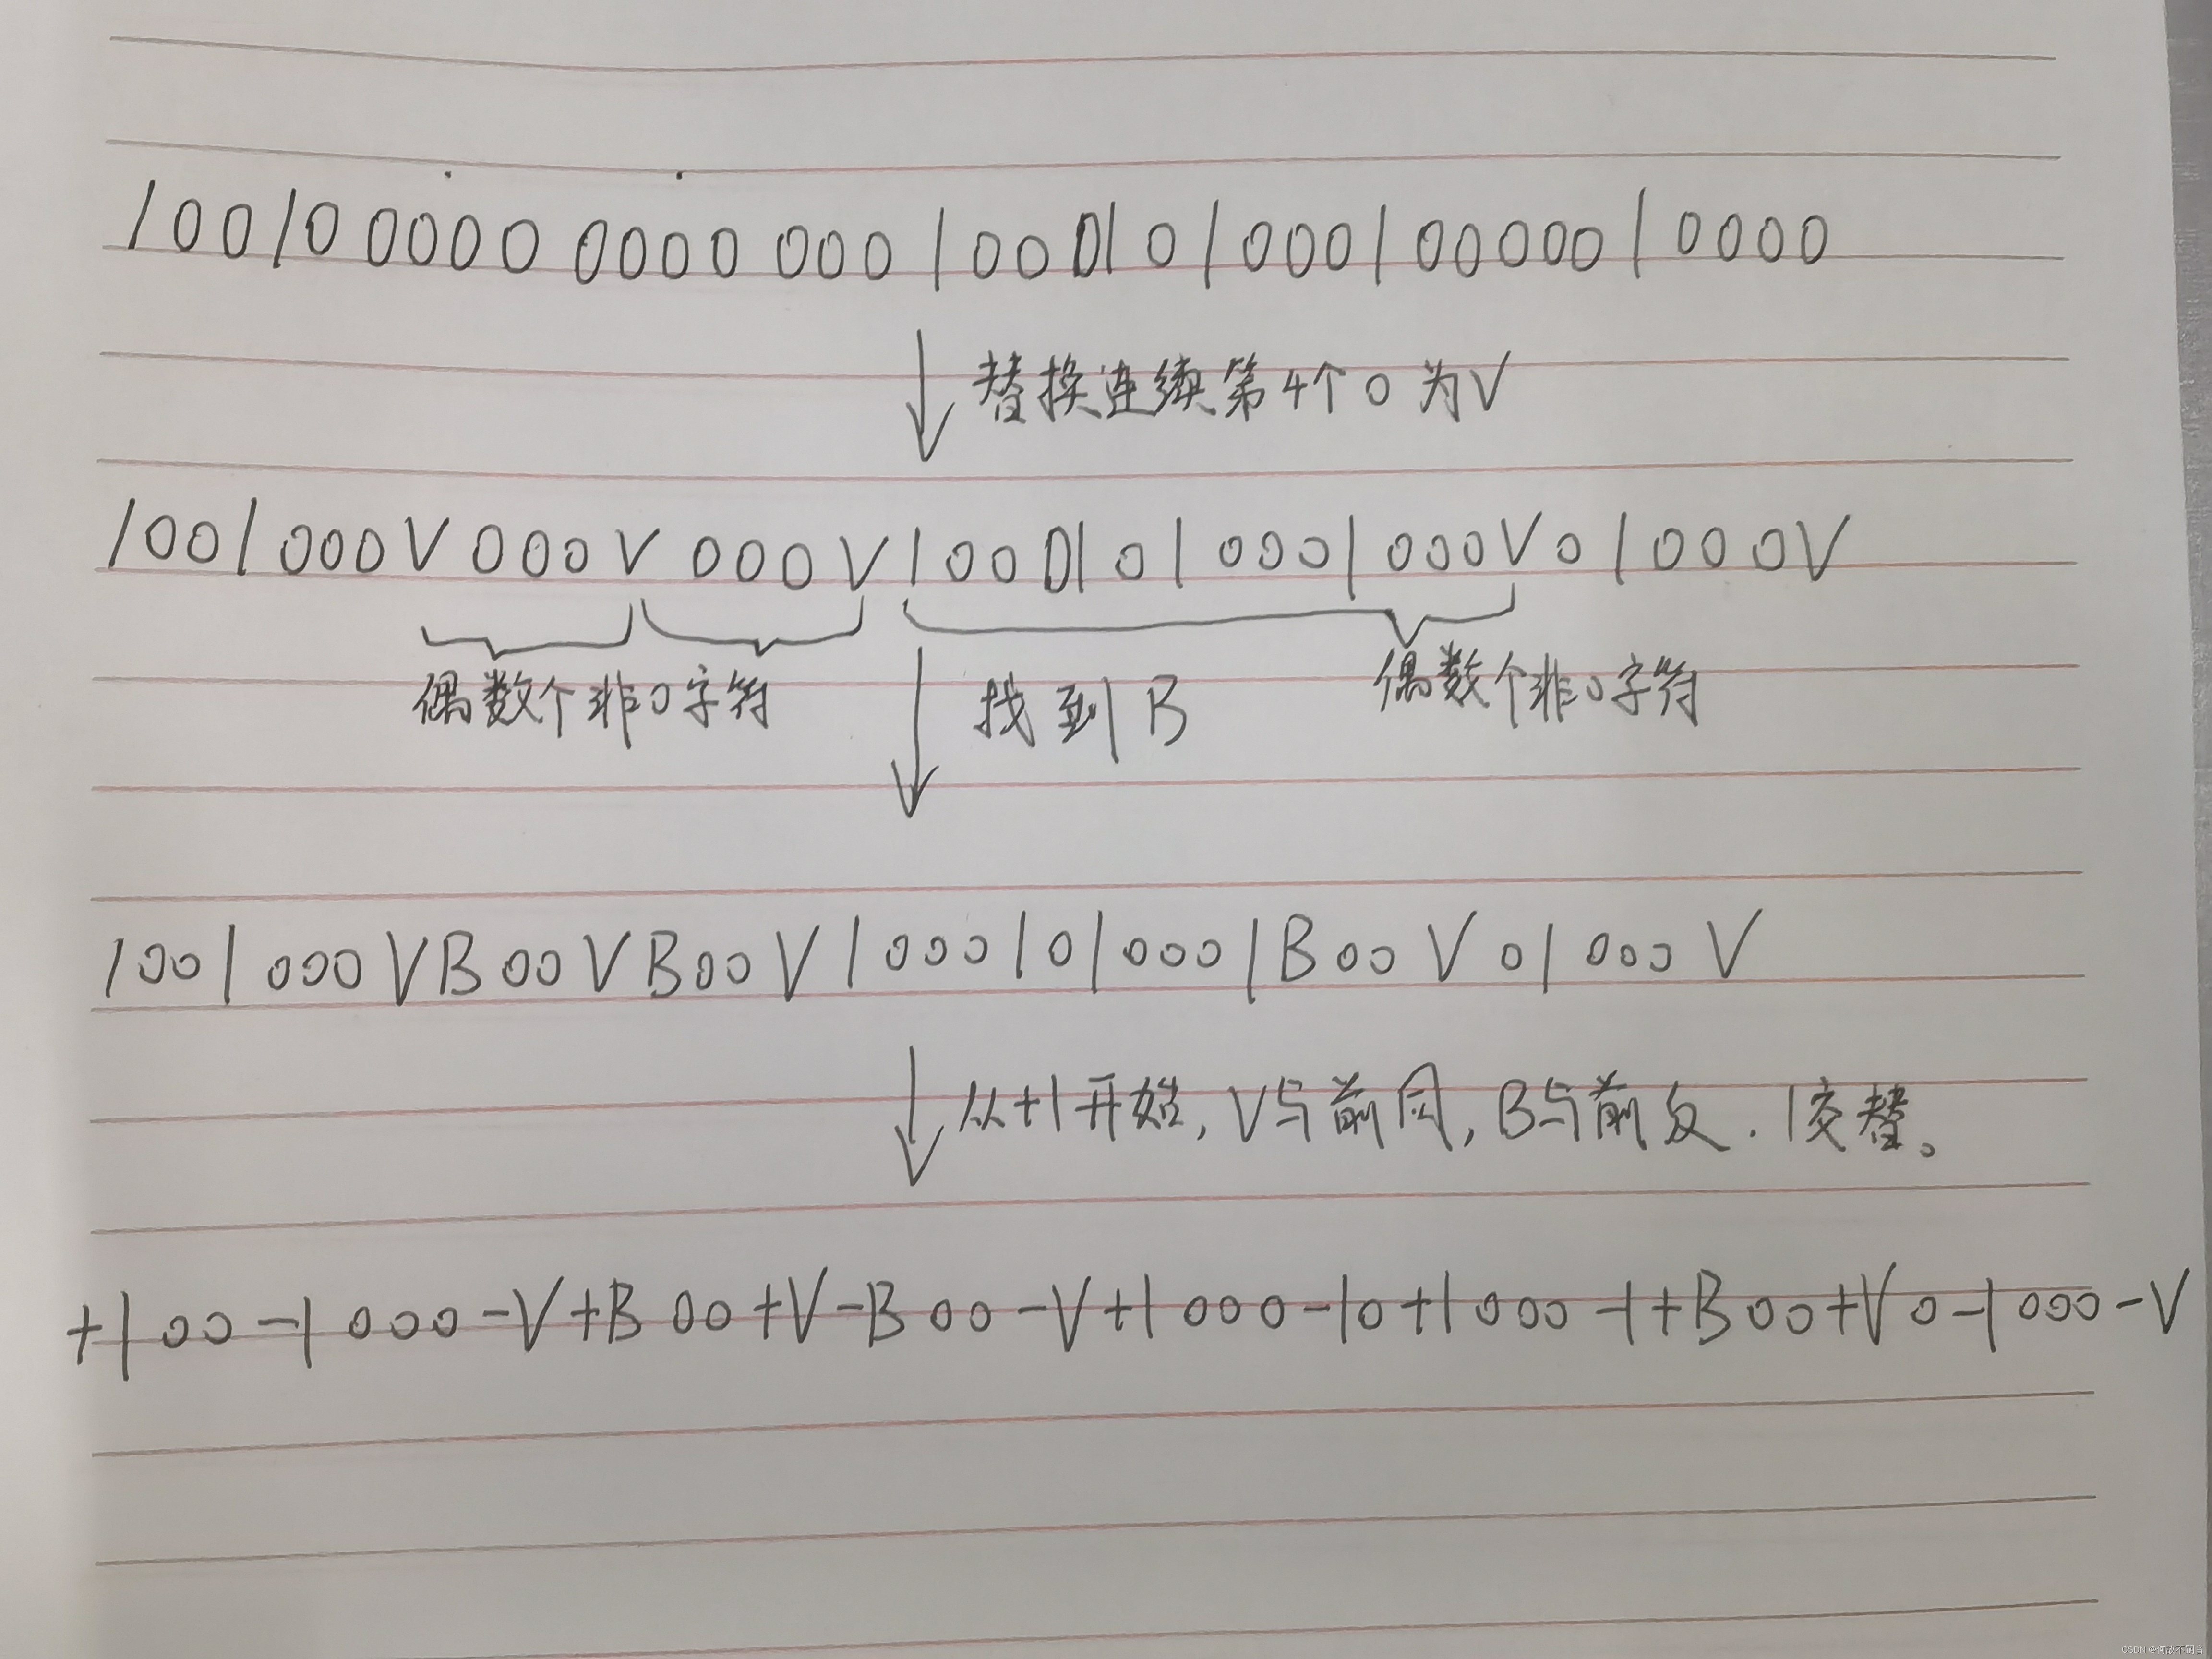 100100000000000010001010001000001 0000
替换连续第4个0为V
1001000V000V000V10001010001000V01000V
偶数个非0字符 找到B 偶数个非0字符
1001000VB00VB00V10001010001B00V01000V
从+1开始,V与前同,B与前反.1交替。
+100-1000-V+B00+V-B00-V+1000-10+1000-1+B00+V0-1000-V
CSDN @何故不射昔